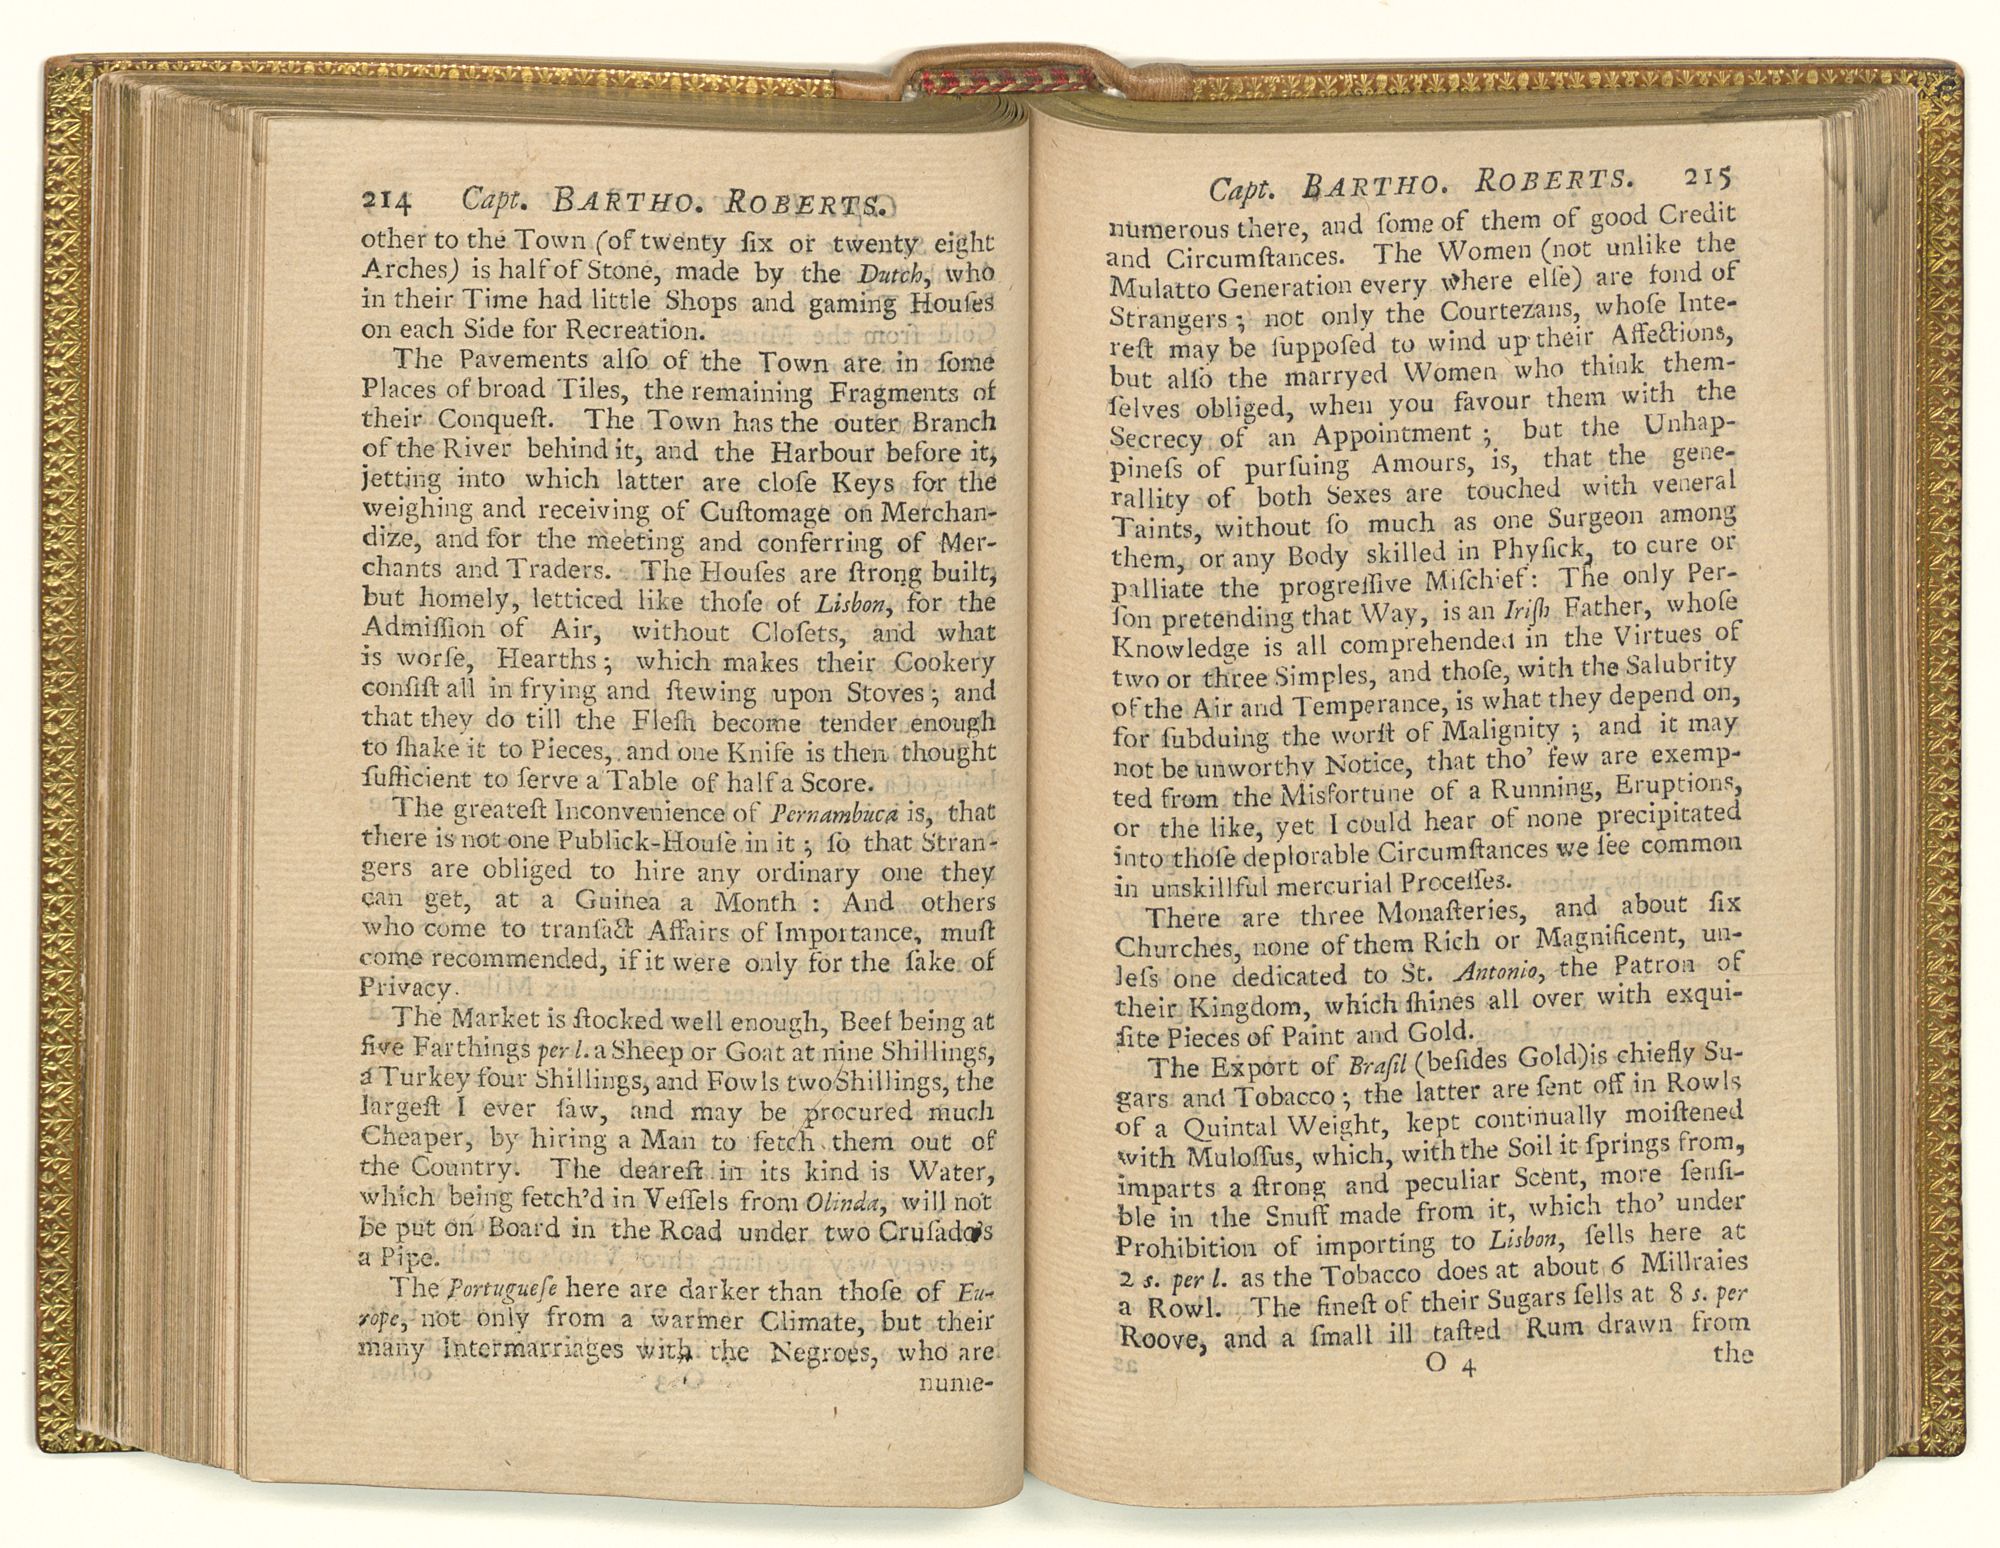 214 Capt. BARTHO. ROBERTS.
other to the Town (of twenty ſix or twenty eight
Arches) is half of Stone, made by the Dutch, who
in their Time had little Shops and gaming Houſes
on each Side for Recreation.
The Pavements alſo of the Town are in ſome
Places of broad Tiles, the remaining Fragments of
their Conqueſt. The Town has the outer Branch
of the River behind it, and the Harbour before it,
jetting into which latter are cloſe Keys for the
weighing and receiving of Cuſtomage on Merchan-
dize, and for the meeting and conferring of Mer-
chants and Traders. The Houſes are ſtrong built,
but homely, letticed like thoſe of Lisbon, for the
Admiſſion of Air, without Cloſets, and what
is worſe, Hearths; which makes their Cookery
conſiſt all in frying and ſtewing upon Stoves; and
that they do till the Fleſh become tender enough
to ſhake it to Pieces, and one Knife is then thought
ſufficient to ſerve a Table of half a Score.
The greateſt Inconvenience of Pernambuca is, that
there is not one Publick-Houſe in it; ſo that Stran-
gers are obliged to hire any ordinary one they
can get, at a Guinea a Month: And others
who come to tranſact Affairs of Importance, muſt
come recommended, if it were only for the ſake of
Privacy.
The Market is ſtocked well enough, Beef being at
five Farthings per l. a Sheep or Goat at nine Shillings,
a Turkey four Shillings, and Fowls two Shillings, the
largeſt I ever ſaw, and may be procured much
Cheaper, by hiring a Man to fetch them out of
the Country. The deareſt in its kind is Water,
which being fetch'd in Veſſels from Olinda, will not
be put on Board in the Road under two Cruſado's
a Pipe.
The Portugueſe here are darker than thoſe of Eu-
rope, not only from a warmer Climate, but their
many Intermarriages with the Negroes, who are
nume-
Capt. BARTHO. ROBERTS. 215
numerous there, and ſome of them of good Credit
and Circumſtances. The Women (not unlike the
Mulatto Generation every where elſe) are fond of
Strangers; not only the Courtezans, whoſe Inte-
reſt may be ſuppoſed to wind up their Affections,
but alſo the marryed Women who think them-
ſelves obliged, when you favour them with the
Secrecy of an Appointment; but the Unhap-
pineſs of purſuing Amours, is, that the gene-
rallity of both Sexes are touched with veneral
Taints, without ſo much as one Surgeon among
them, or any Body skilled in Phyſick, to cure or
palliate the progreſſive Miſchief: The only Per-
ſon pretending that Way, is an Iriſh Father, whoſe
Knowledge is all comprehended in the Virtues of
two or three Simples, and thoſe, with the Salubrity
of the Air and Temperance, is what they depend on,
for ſubduing the worſt of Malignity; and it may
not be unworthy Notice, that tho' few are exemp-
ted from the Misfortune of a Running, Eruptions,
or the like, yet I could hear of none precipitated
into thoſe deplorable Circumſtances we ſee common
in unskillful mercurial Proceſſes.
There are three Monaſteries, and about ſix
Churches, none of them Rich or Magnificent, un-
leſs one dedicated to St. Antonio, the Patron of
their Kingdom, which ſhines all over with exqui-
ſite Pieces of Paint and Gold.
The Export of Braſil (beſides Gold) is chiefly Su-
gars and Tobacco; the latter are ſent off in Rowls
of a Quintal Weight, kept continually moiſtened
with Muloſſus, which, with the Soil it ſprings from,
imparts a ſtrong and peculiar Scent, more ſenſi-
ble in the Snuff made from it, which tho' under
Prohibition of importing to Lisbon, ſells here at
2 s. per l. as the Tobacco does at about 6 Millraies
a Rowl. The fineſt of their Sugars ſells at 8 s. per
Roove, and a ſmall ill taſted Rum drawn from
O 4 the